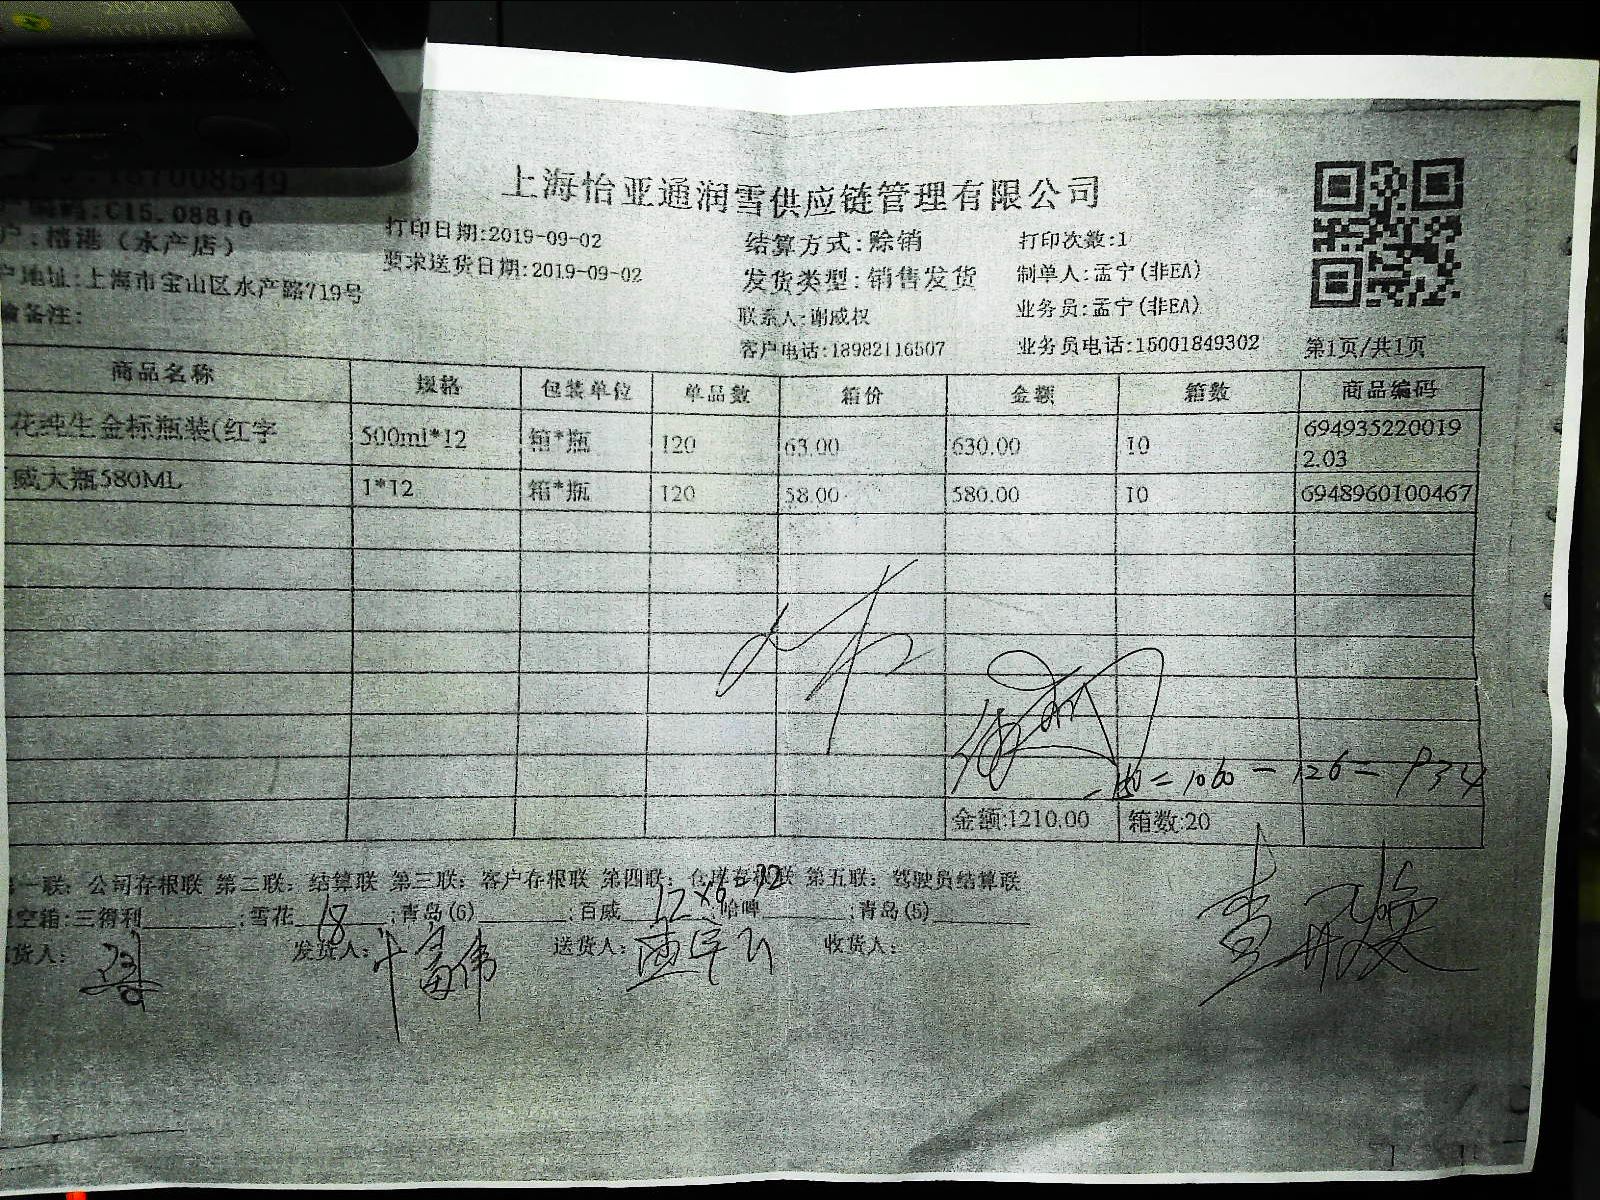 上海怡亚通润雪供应链管理有限公司
187008649
C15.08810
户:榕港(水产店) 打印日期:2019-09-02 结算方式:赊销 打印次数:1
户地址:上海市宝山区水产路719号 要求送货日期:2019-09-02 发货类型:销售发货 制单人:孟宁(非EA)
输备注: 联系人:谢威权 业务员:孟宁(非EA)
客户电话:18982116507 业务员电话:15001849302 第1页/共1页
商品名称 规格 包装单位 单品数 箱价 金额 箱数 商品编码
花纯生金标瓶装(红字 500ml*12 箱*瓶 120 63.00 630.00 10 6949352200192.03
威大瓶580ML 1*12 箱*瓶 120 58.00 580.00 10 6948960100467
-150=1060-126=934
金额:1210.00 箱数:20
一联: 公司存根联 第二联: 结算联 第三联: 客户存根联 第四联: 仓库存根联 第五联: 驾驶员结算联
空箱:三得利 ;雪花 18 ;青岛(6) ;百威 12×6=72 ;哈啤 ;青岛(5)
货人: 发货人: 叶富伟 送货人: 收货人: